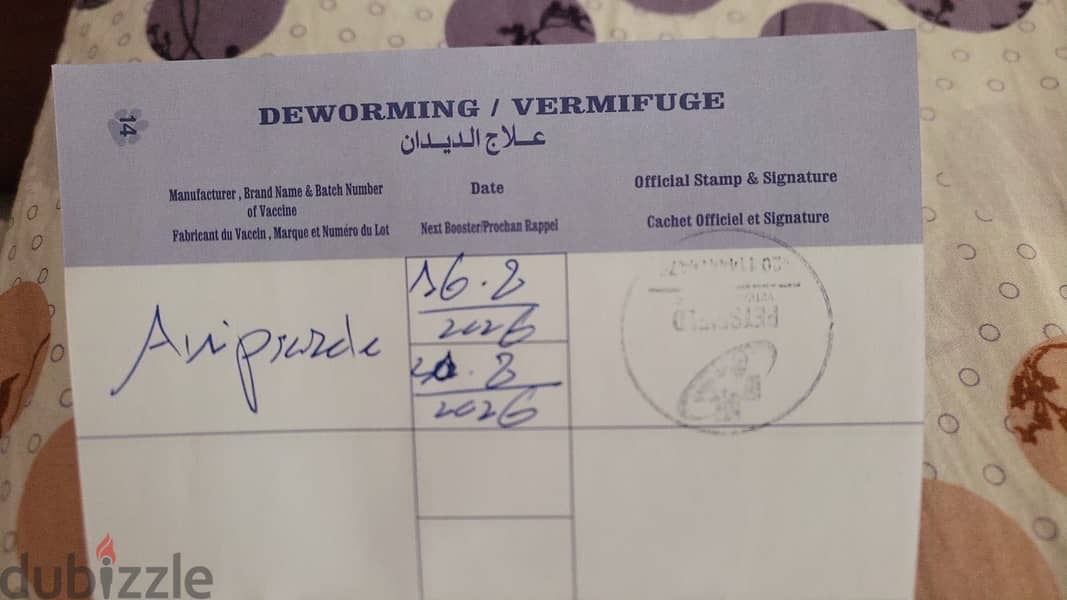 14
DEWORMING / VERMIFUGE
علاج الديدان
Manufacturer , Brand Name & Batch Number
of Vaccine
Fabricant du Vaccin , Marque et Numéro du Lot
Date
Next Booster/Prochan Rappel
Official Stamp & Signature
Cachet Officiel et Signature
16.8
2026
8
2026
dubizzle